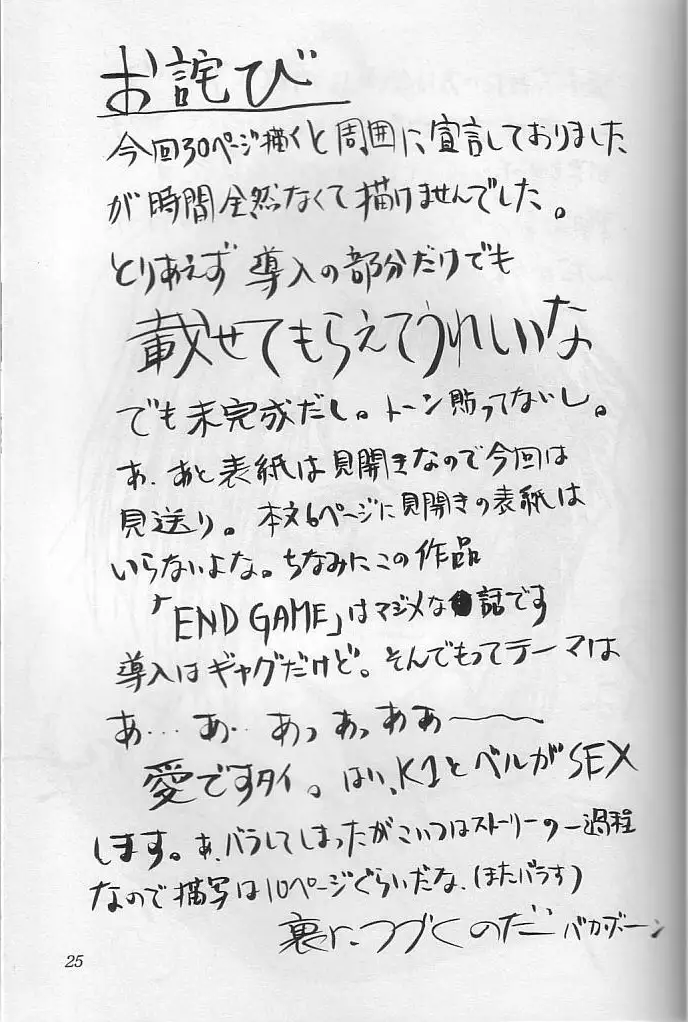 お詫び
今回30ページ描くと周囲に宣言しておりました
が時間全然なくて描けませんでした。
とりあえず導入の部分だけでも
載せてもらえてうれしいな
でも未完成だし。トーン貼ってないし。
あ、あと表紙は見開きなので今回は
見送り。本文6ページに見開きの表紙は
いらないよな。ちなみにこの作品
「END GAME」はマジメな話です
導入はギャグだけど。そんでもってテーマは
あ…あ…あっあっああ〜
愛ですタイ。はい、K1とベルがSEX
します。あ、バラしてしまったがこいつはストーリーの一過程
なので描写は10ページぐらいだな、(またバラす)
裏につづくのだ バカボーン
25